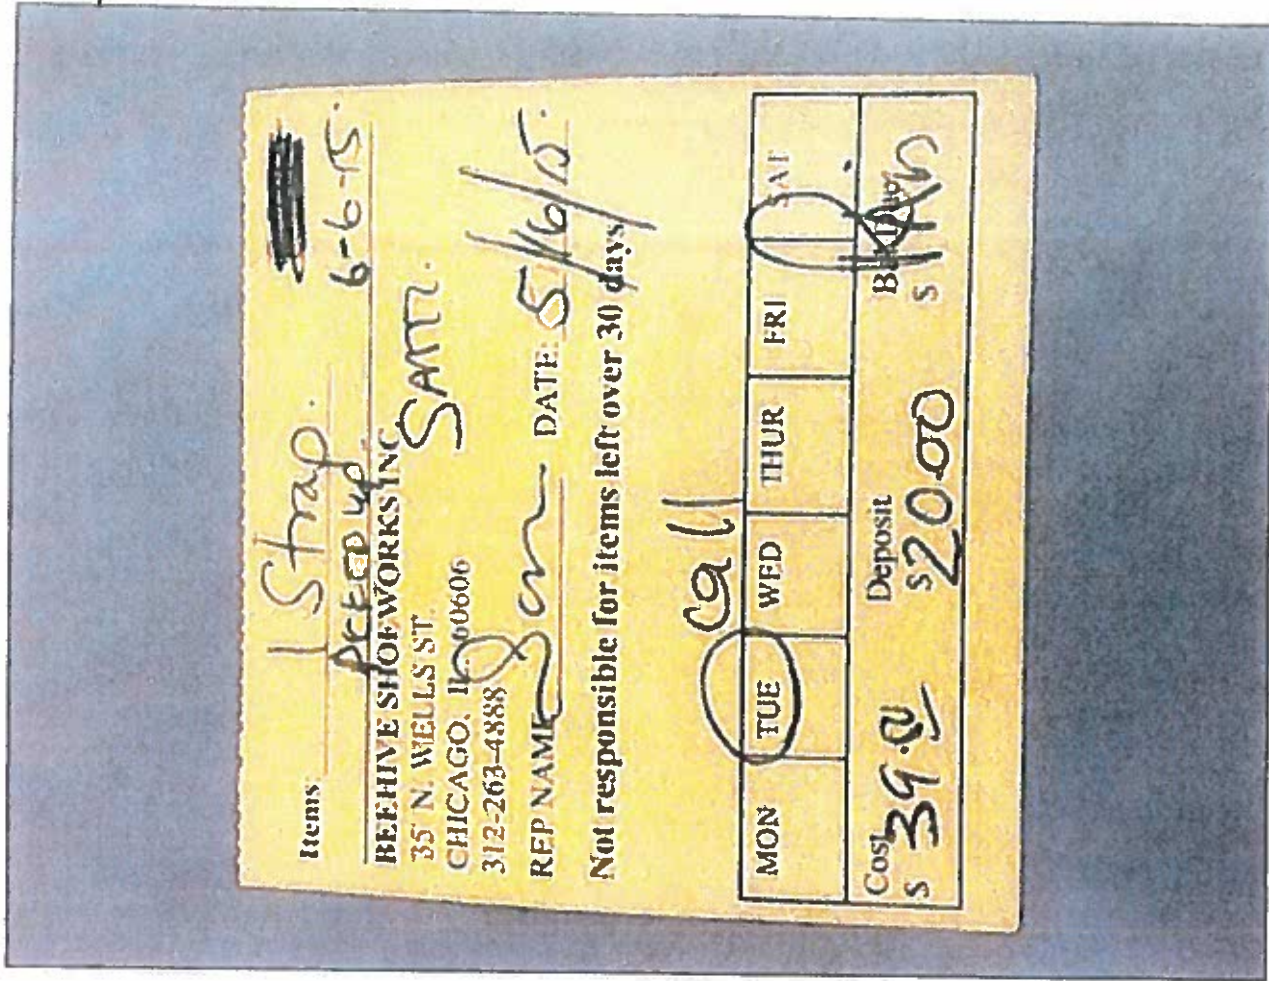 Items: 1 Strap.
Pick up 6-6-15.
BEEHIVE SHOEWORKS INC
35 N. WELLS ST.
CHICAGO, IL 60606
312-263-4888
REP NAME DATE: 5/16/15.
Not responsible for items left over 30 days
Call
MON TUE WED THUR FRI SAT
Cost Deposit Balance
$ 39. $ 20.00 $